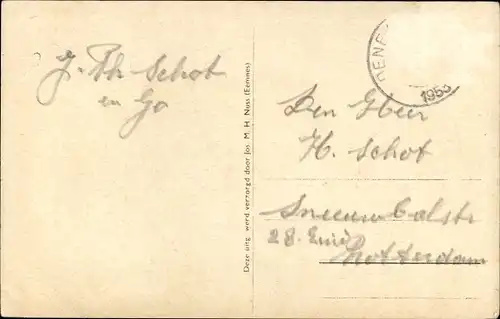 J. Th Schot
en Go
Deze uitg. werd verzorgd door Jos. M. H. Nuss (Eemnes)
RENE
1953
Den Heer
H. Schot
Sneeuwbalstr
28.
Rotterdam